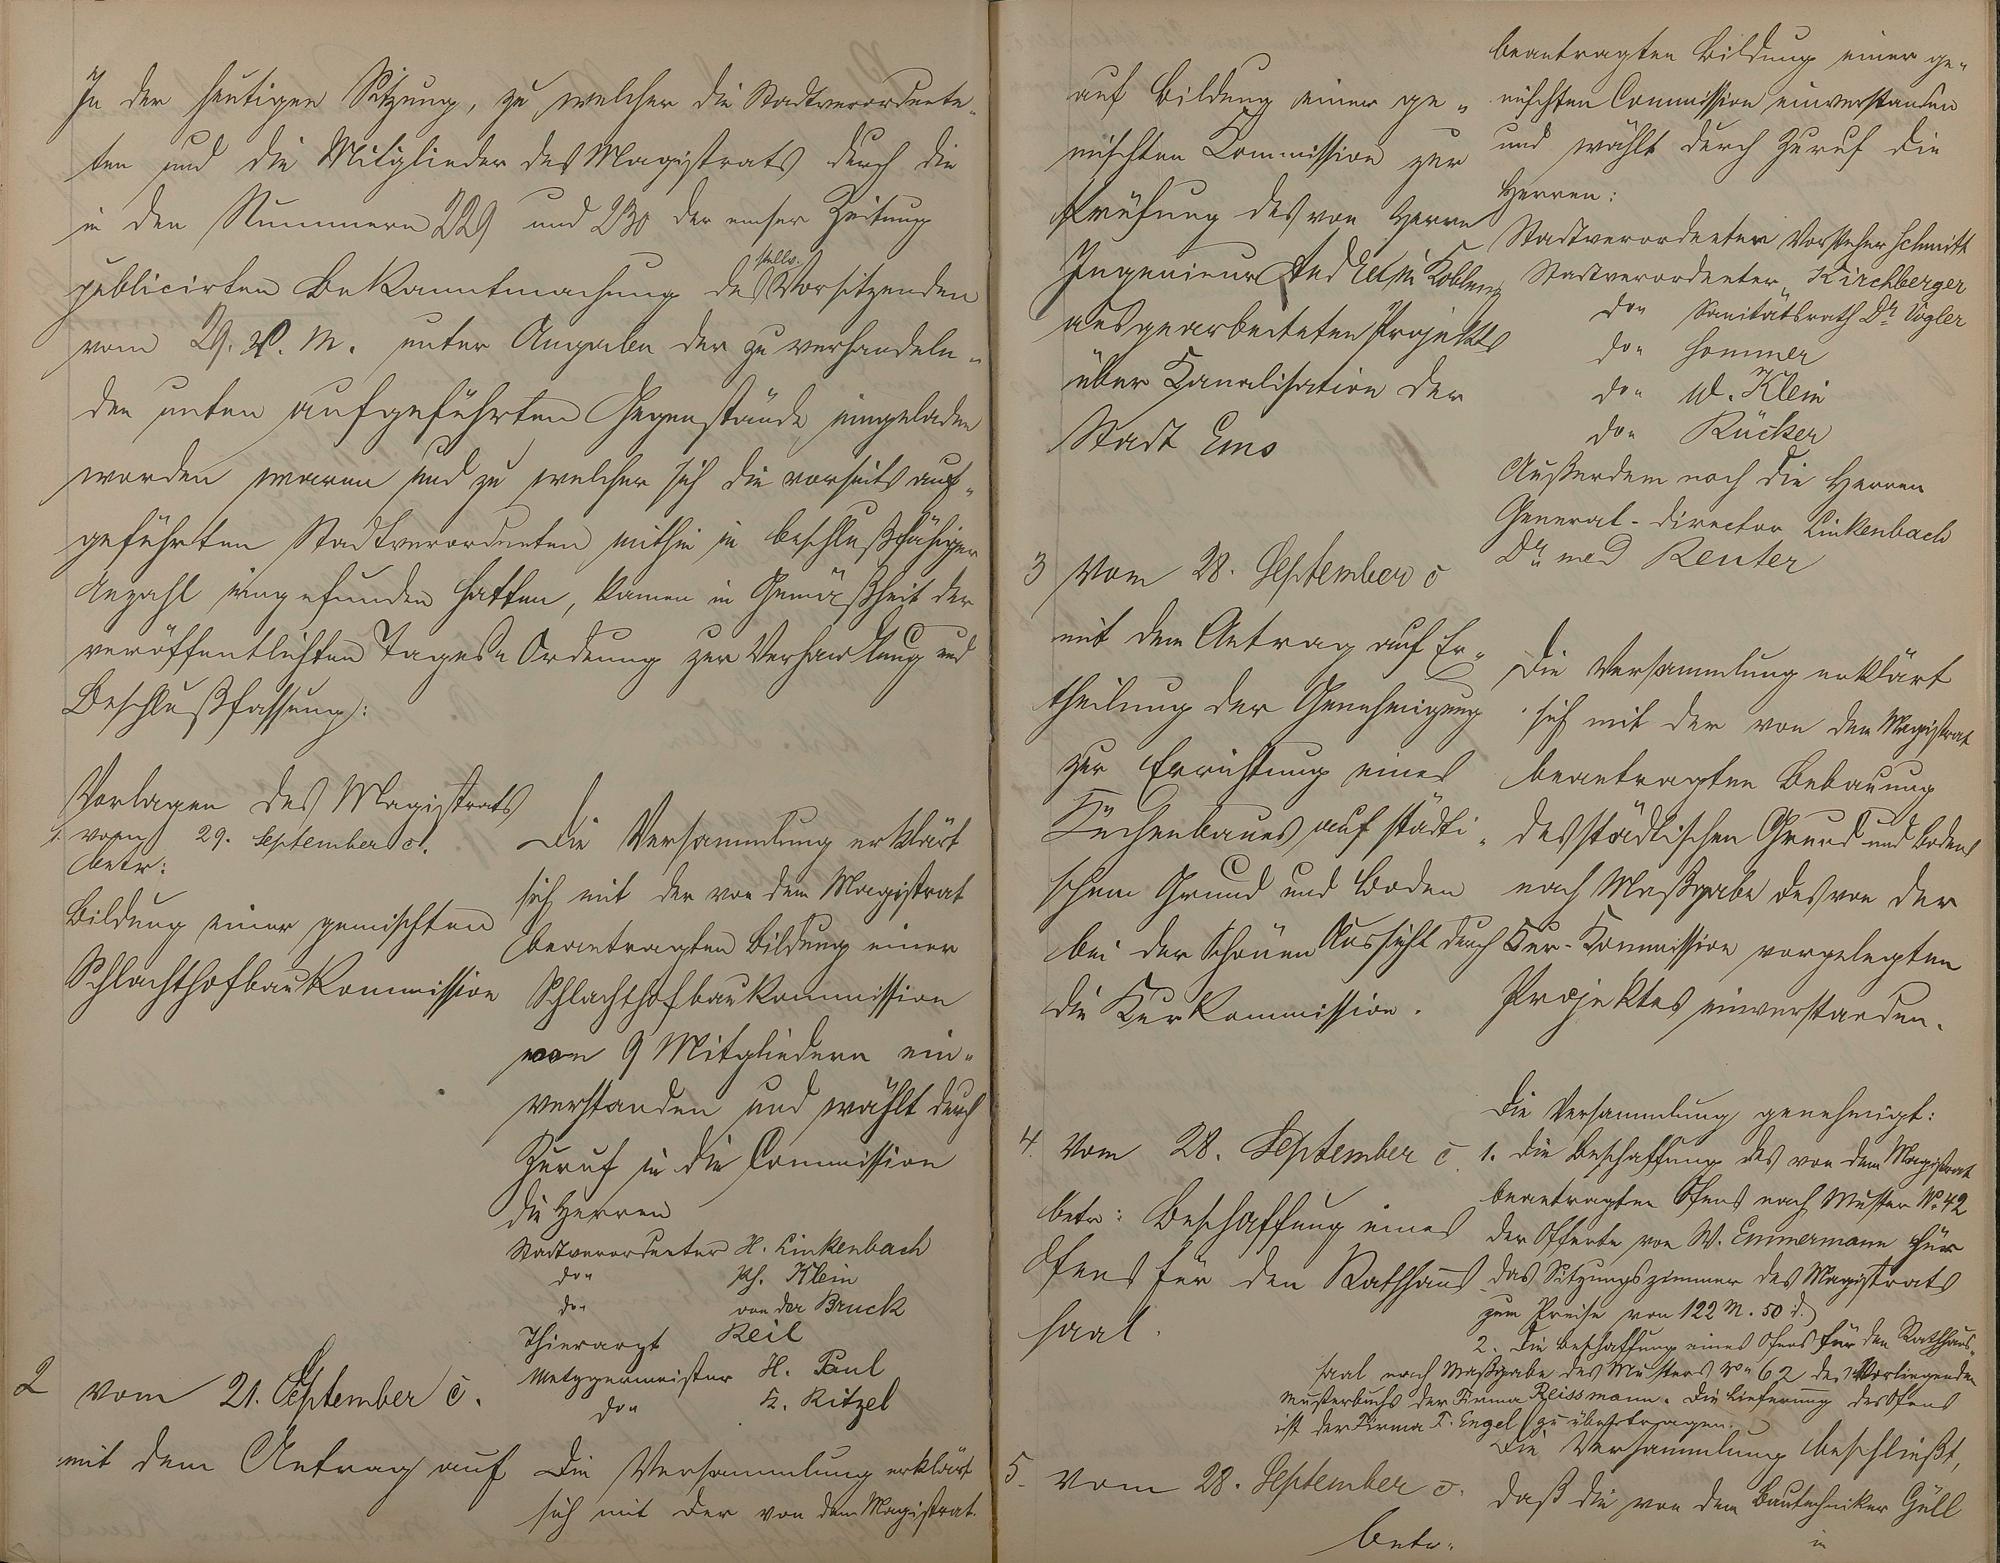 In der heutigen Sitzung, zu welcher die Stadtverordne-
ten und die Mitglieder des Magistrats durch die
in den Nummern 229 und 230 der emser Zeitung
publicirten Bekanntmachung des stellv. Vorsitzenden
vom 29. v. M. unter Angabe der zu verhandeln-
den unten aufgeführten Gegenstände eingeladen
worden waren und zu welcher sich die vorseits auf-
geführten Stadtverordneten mithin in beschlußfähiger
Anzahl eingefunden hatten, kamen in Gemäßheit der
veröffentlichten Tages-Ordnung zur Verhandlung und
Beschlußfassung:
Vorlagen des Magistrats
1. vom 29. September c.
betr:
Bildung einer gemischten
Schlachthofbaukommission
Die Versammlung erklärt
sich mit der von dem Magistrat
beantragten Bildung einer
Schlachthofbaukommission
von 9 Mitgliedern ein-
verstanden und wählt durch
Zuruf in die Commission
die Herren
Stadtverordneter H. Linkenbach
do" Ph. Klein
do" von der Bruck
Thierarzt Keil
Metzgermeister H. Paul
do" F. Ritzel
2 vom 21. September c.
mit dem Antrag auf
Die Versammlung erklärt
sich mit der von dem Magistrat
auf Bildung einer ge-
mischten Commission zur
Prüfung des von Herrn
Ingenieur in Koblenz
ausgearbeiteten Projekts
über Kanalisation der
Stadt Ems
beantragten Bildung einer ge-
mischten Commission einverstanden
und wählt durch Zuruf die
Herren:
Stadtverordneten Vorsteher Schmitt
Stadtverordneter Kirchberger
do" Sanitätsrath Dr Vogler
do" Sommer
do" W. Klein
do" Rücker
Außerdem noch die Herren
General-Director Linkenbach
Dr med Reuter
3 vom 28. September c
mit dem Antrag auf Er-
theilung der Genehmigung
zur Errichtung eines
Küchenbaues auf städti-
schem Grund und Boden
bei der Schönen Aussicht durch
die Kurkommission.
Die Versammlung erklärt
sich mit der von dem Magistrat
beantragten Bebauung
des städtischen Grund und Bodens
nach Maßgabe des von der
Kur-Kommission vorgelegten
Projektes einverstanden.
4. vom 28. September c.
betr: Beschaffung eines
Ofens für den Rathhaus
saal.
Die Versammlung genehmigt:
1. die Beschaffung des von dem Magistrat
beantragten Ofens nach Muster No 42
der Offerte von W. Emmermann für
das Sitzungszimmer des Magistrats
zum Preise von 122 M. 50 d.
2. Die Beschaffung eines Ofens für den Rathhaus-
saal nach Maßgabe des Musters No 62 des vorliegenden
Musterbuchs der Firma Reissmann. Die Lieferung des Ofens
ist der Firma F. Engel zu übertragen.
5. vom 28. September c.
betr:
Die Versammlung beschließt,
daß die von dem Bautechniker Güll
in